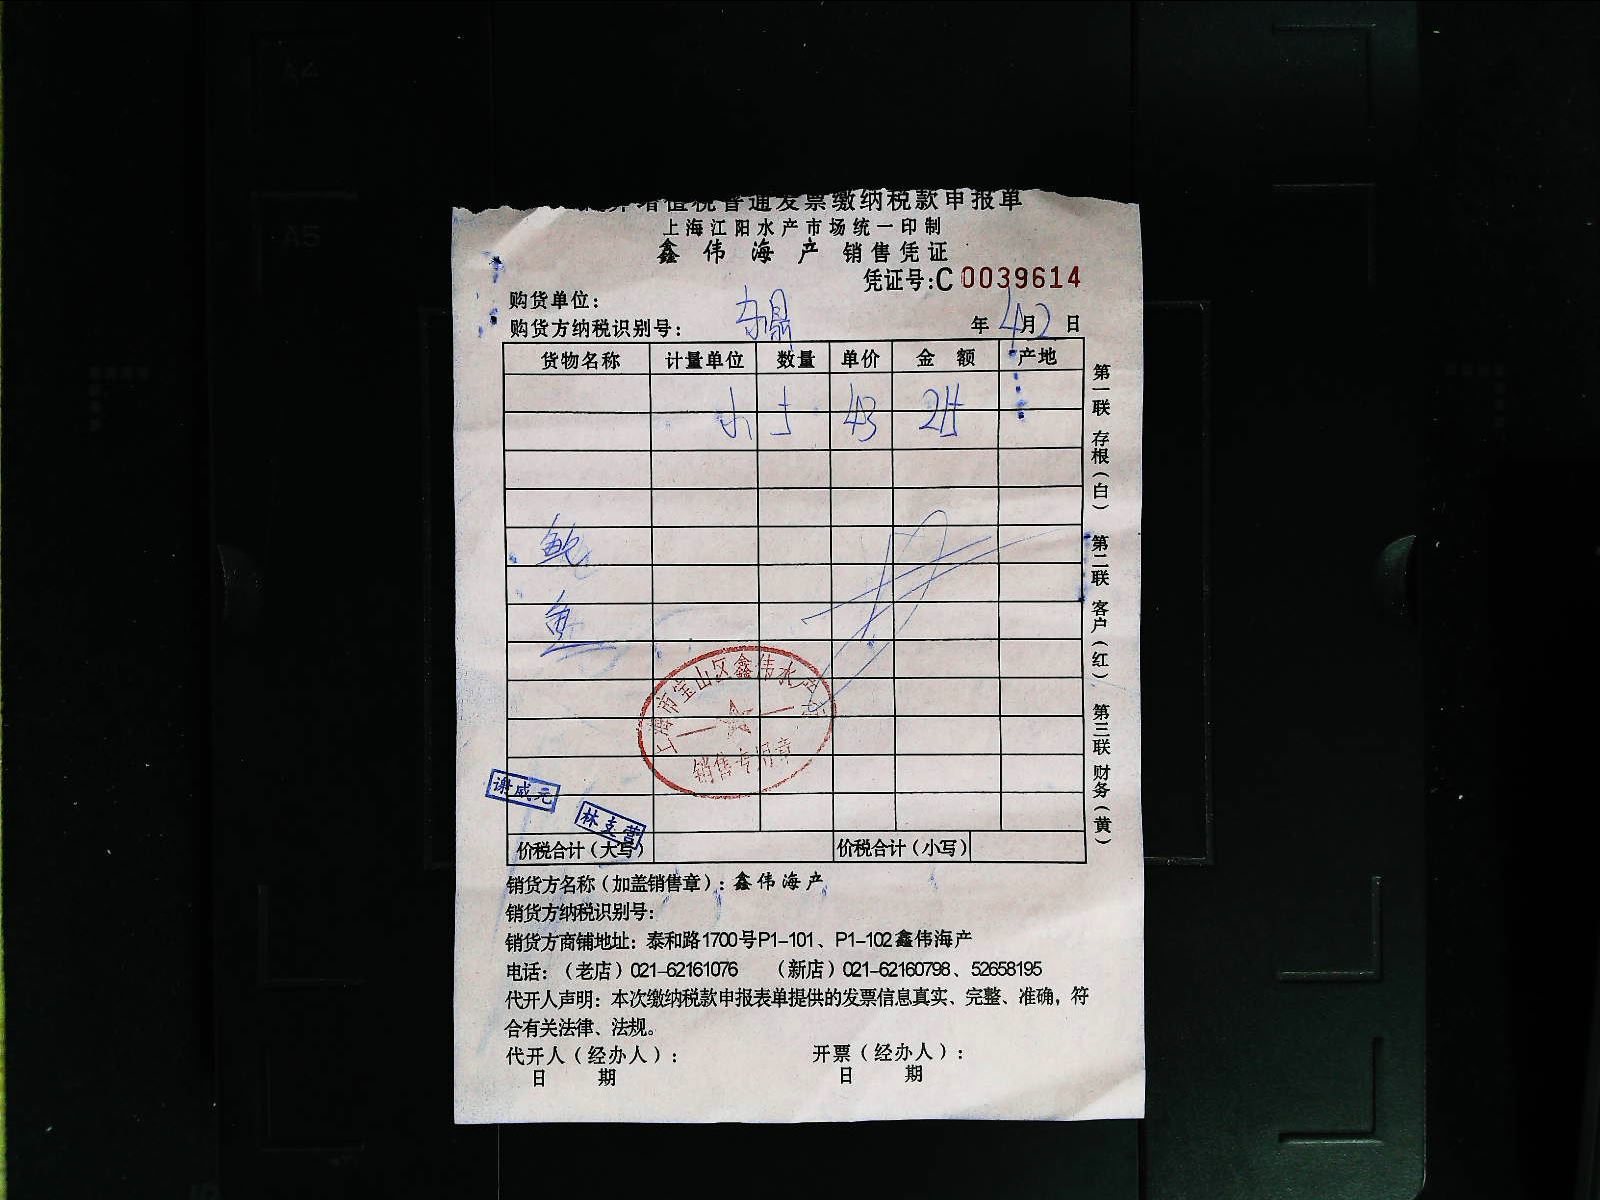 增值税普通发票缴纳税款申报单
上海江阳水产市场统一印制
鑫伟海产 销售凭证
凭证号:C 0039614
购货单位:
购货方纳税识别号:
年 4月2日
货物名称 计量单位 数量 单价 金额 产地
43
鲍
鱼
上海市宝山区鑫伟水产
销售专用章
谢威元
林支营
价税合计(大写) 价税合计(小写)
销货方名称(加盖销售章):鑫伟海产
销货方纳税识别号:
销货方商铺地址:泰和路1700号P1-101、P1-102鑫伟海产
电话:(老店)021-62161076 (新店)021-62160798、52658195
代开人声明:本次缴纳税款申报表单提供的发票信息真实、完整、准确,符
合有关法律、法规。
代开人(经办人): 开票(经办人):
日 期 日 期
第一联 存根(白) 第二联 客户(红) 第三联 财务(黄)